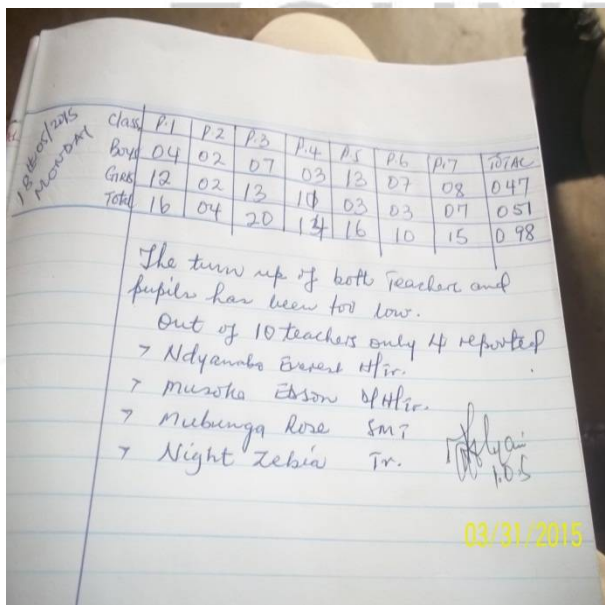 18th/05/2015
MONDAY
Class P.1 P.2 P.3 P.4 P.5 P.6 P.7 TOTAL
Boys 04 02 07 03 13 07 08 047
Girls 12 02 13 03 03 07 051
Total 16 04 20 14 16 10 15 098
The turn up of both Teachers and
pupils has been too low.
Out of 10 teachers only 4 reported
> Ndyanabo Everest H/Tr.
> Musoke Edson D/H/Tr.
> Mubunga Rose SMT
> Night Zebia Tr.
I.O.S
03/31/2015